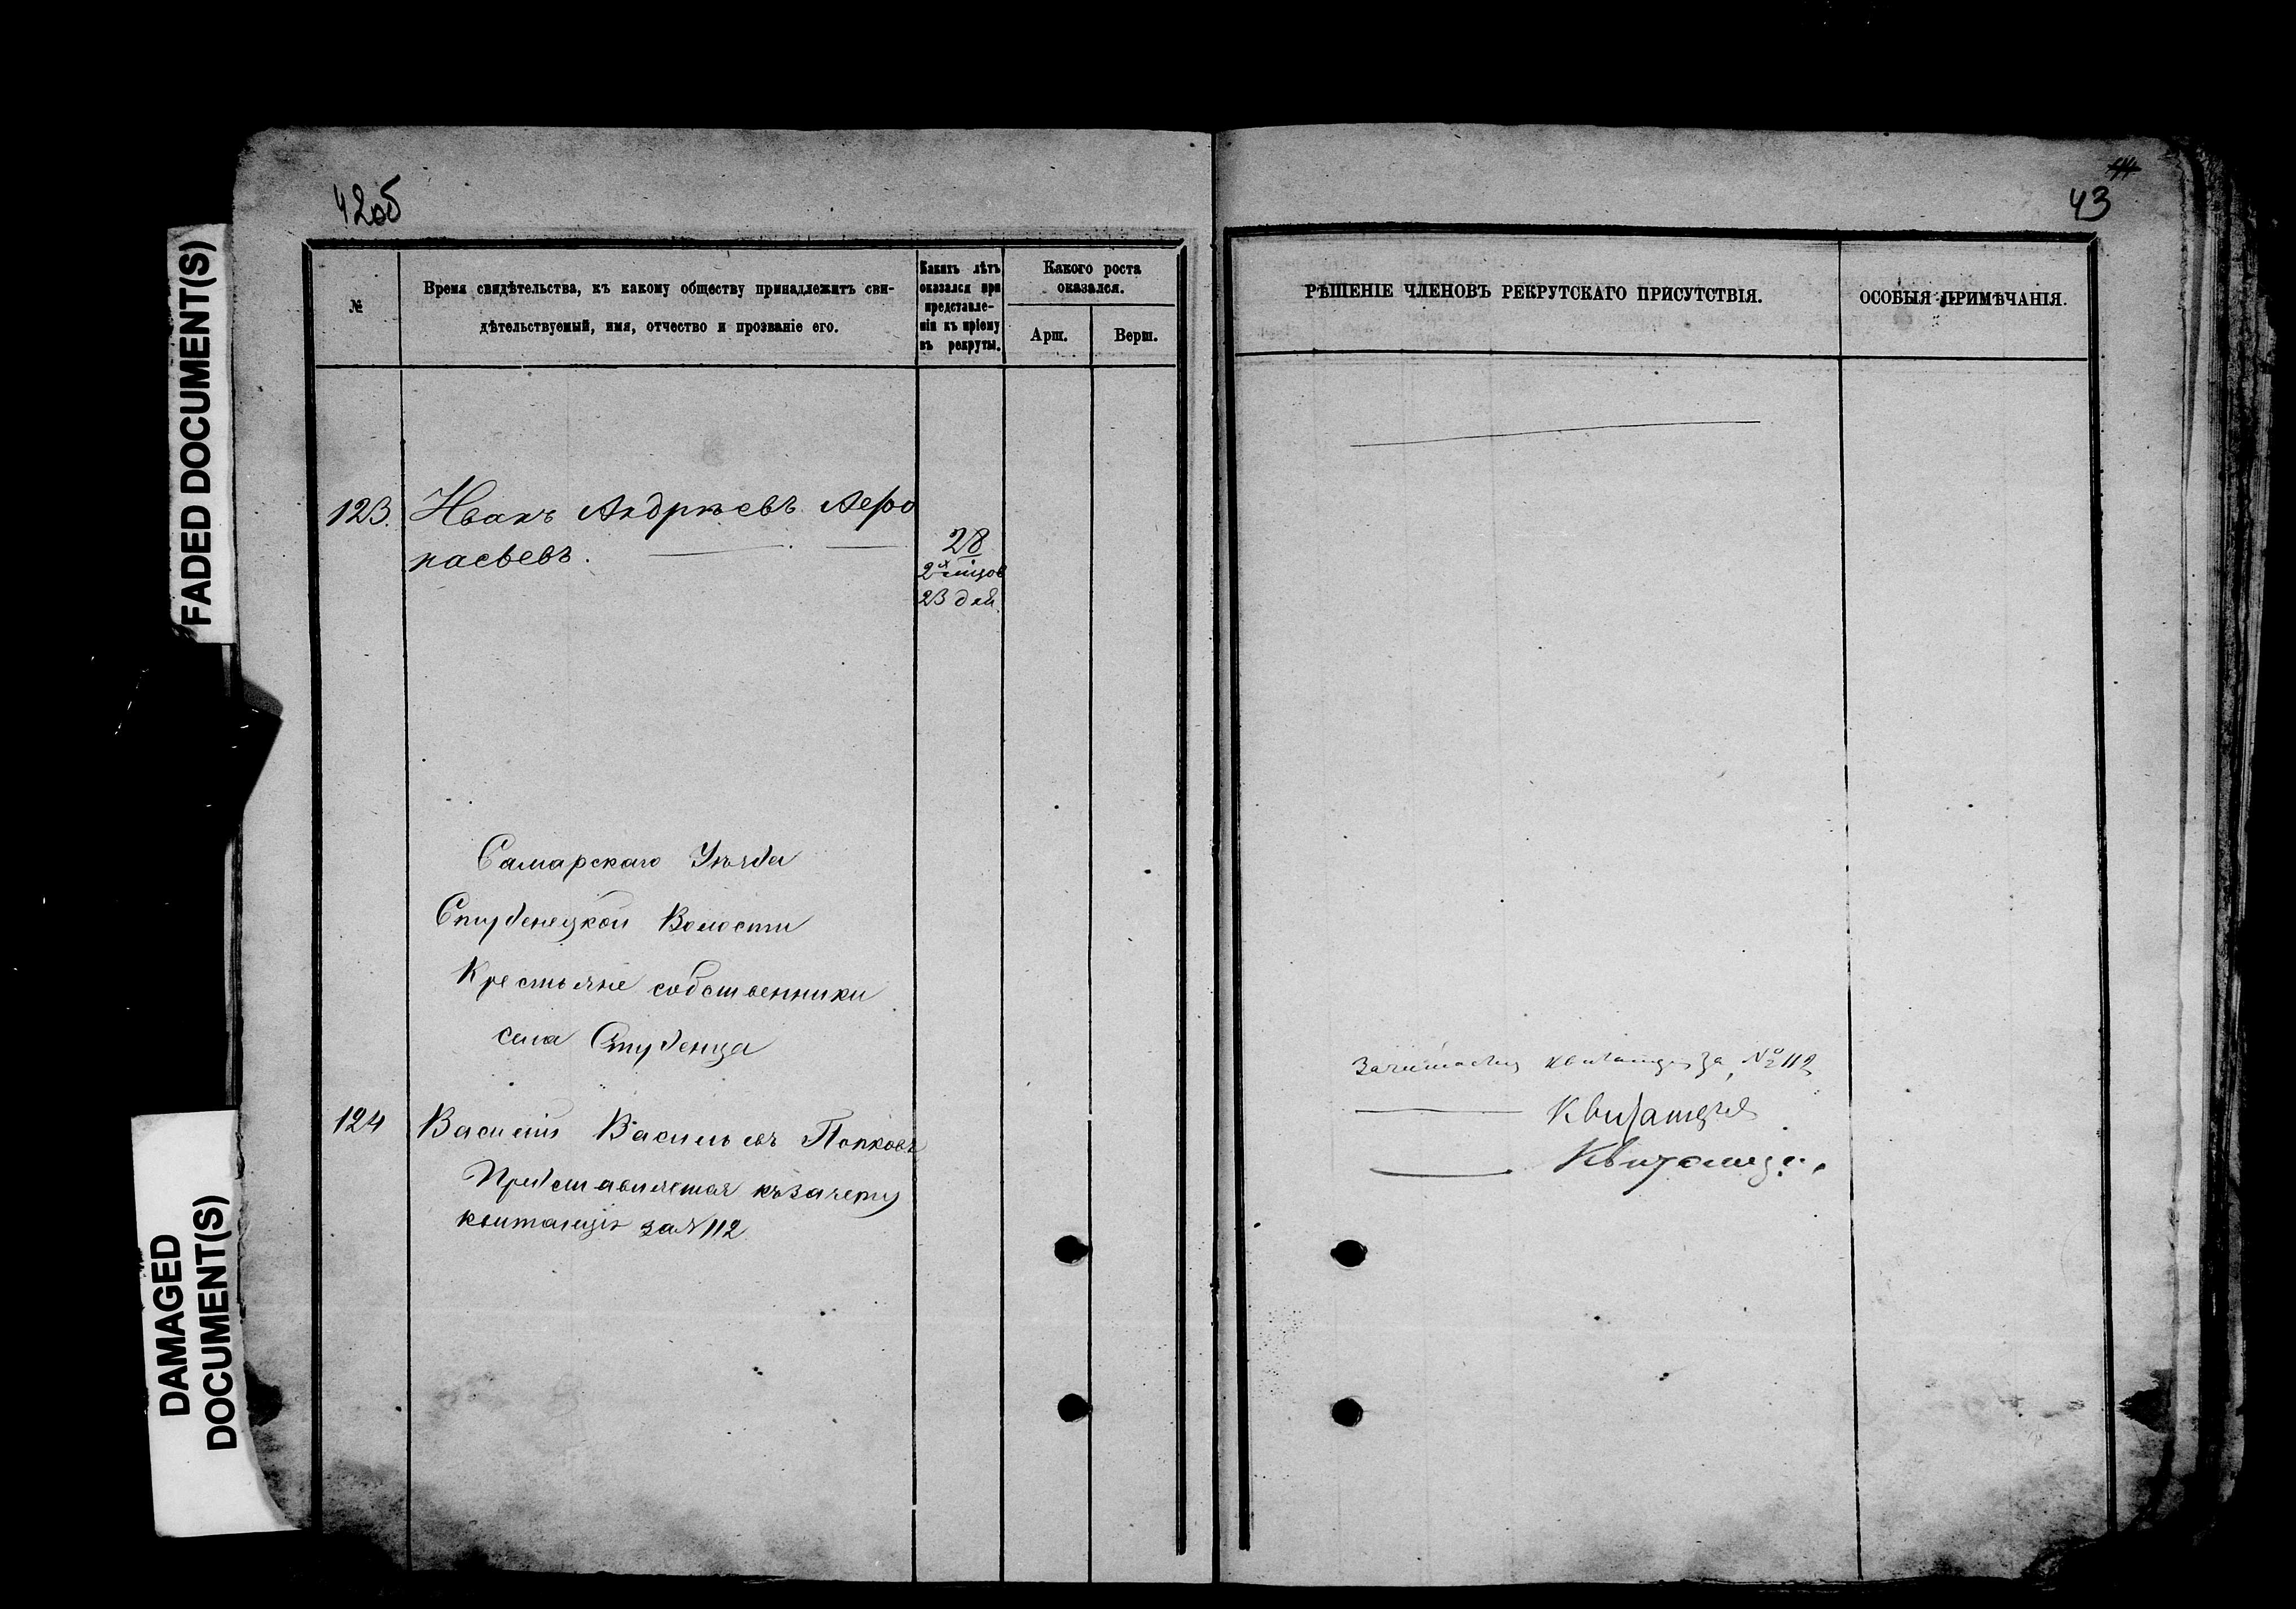 42об
№
Время свидѣтельства, къ какому обществу принадлежитъ сви-
дѣтельствуемый, имя, отчество и прозваніе его.
Какихъ лѣтъ
оказался при
представле-
ніи къ пріему
въ рекруты.
Какого роста
оказался.
Арш.
Верш.
123.
Иванъ Андрѣевъ Афо
насьевъ.
28
23 дня
Самарскаго Уѣзда
Студенецкой Волости
Крестьяне собственники
села Студенца
124
Василій Васильевъ Попковъ
Представляется къ зачету
квитанція за № 112
43
РѢШЕНІЕ ЧЛЕНОВЪ РЕКРУТСКАГО ПРИСУТСТВІЯ.
ОСОБЫЯ ПРИМѢЧАНІЯ.
квитанція за № 112
Квитанція
Квитанція
FADED DOCUMENT(S)
DAMAGED
DOCUMENT(S)